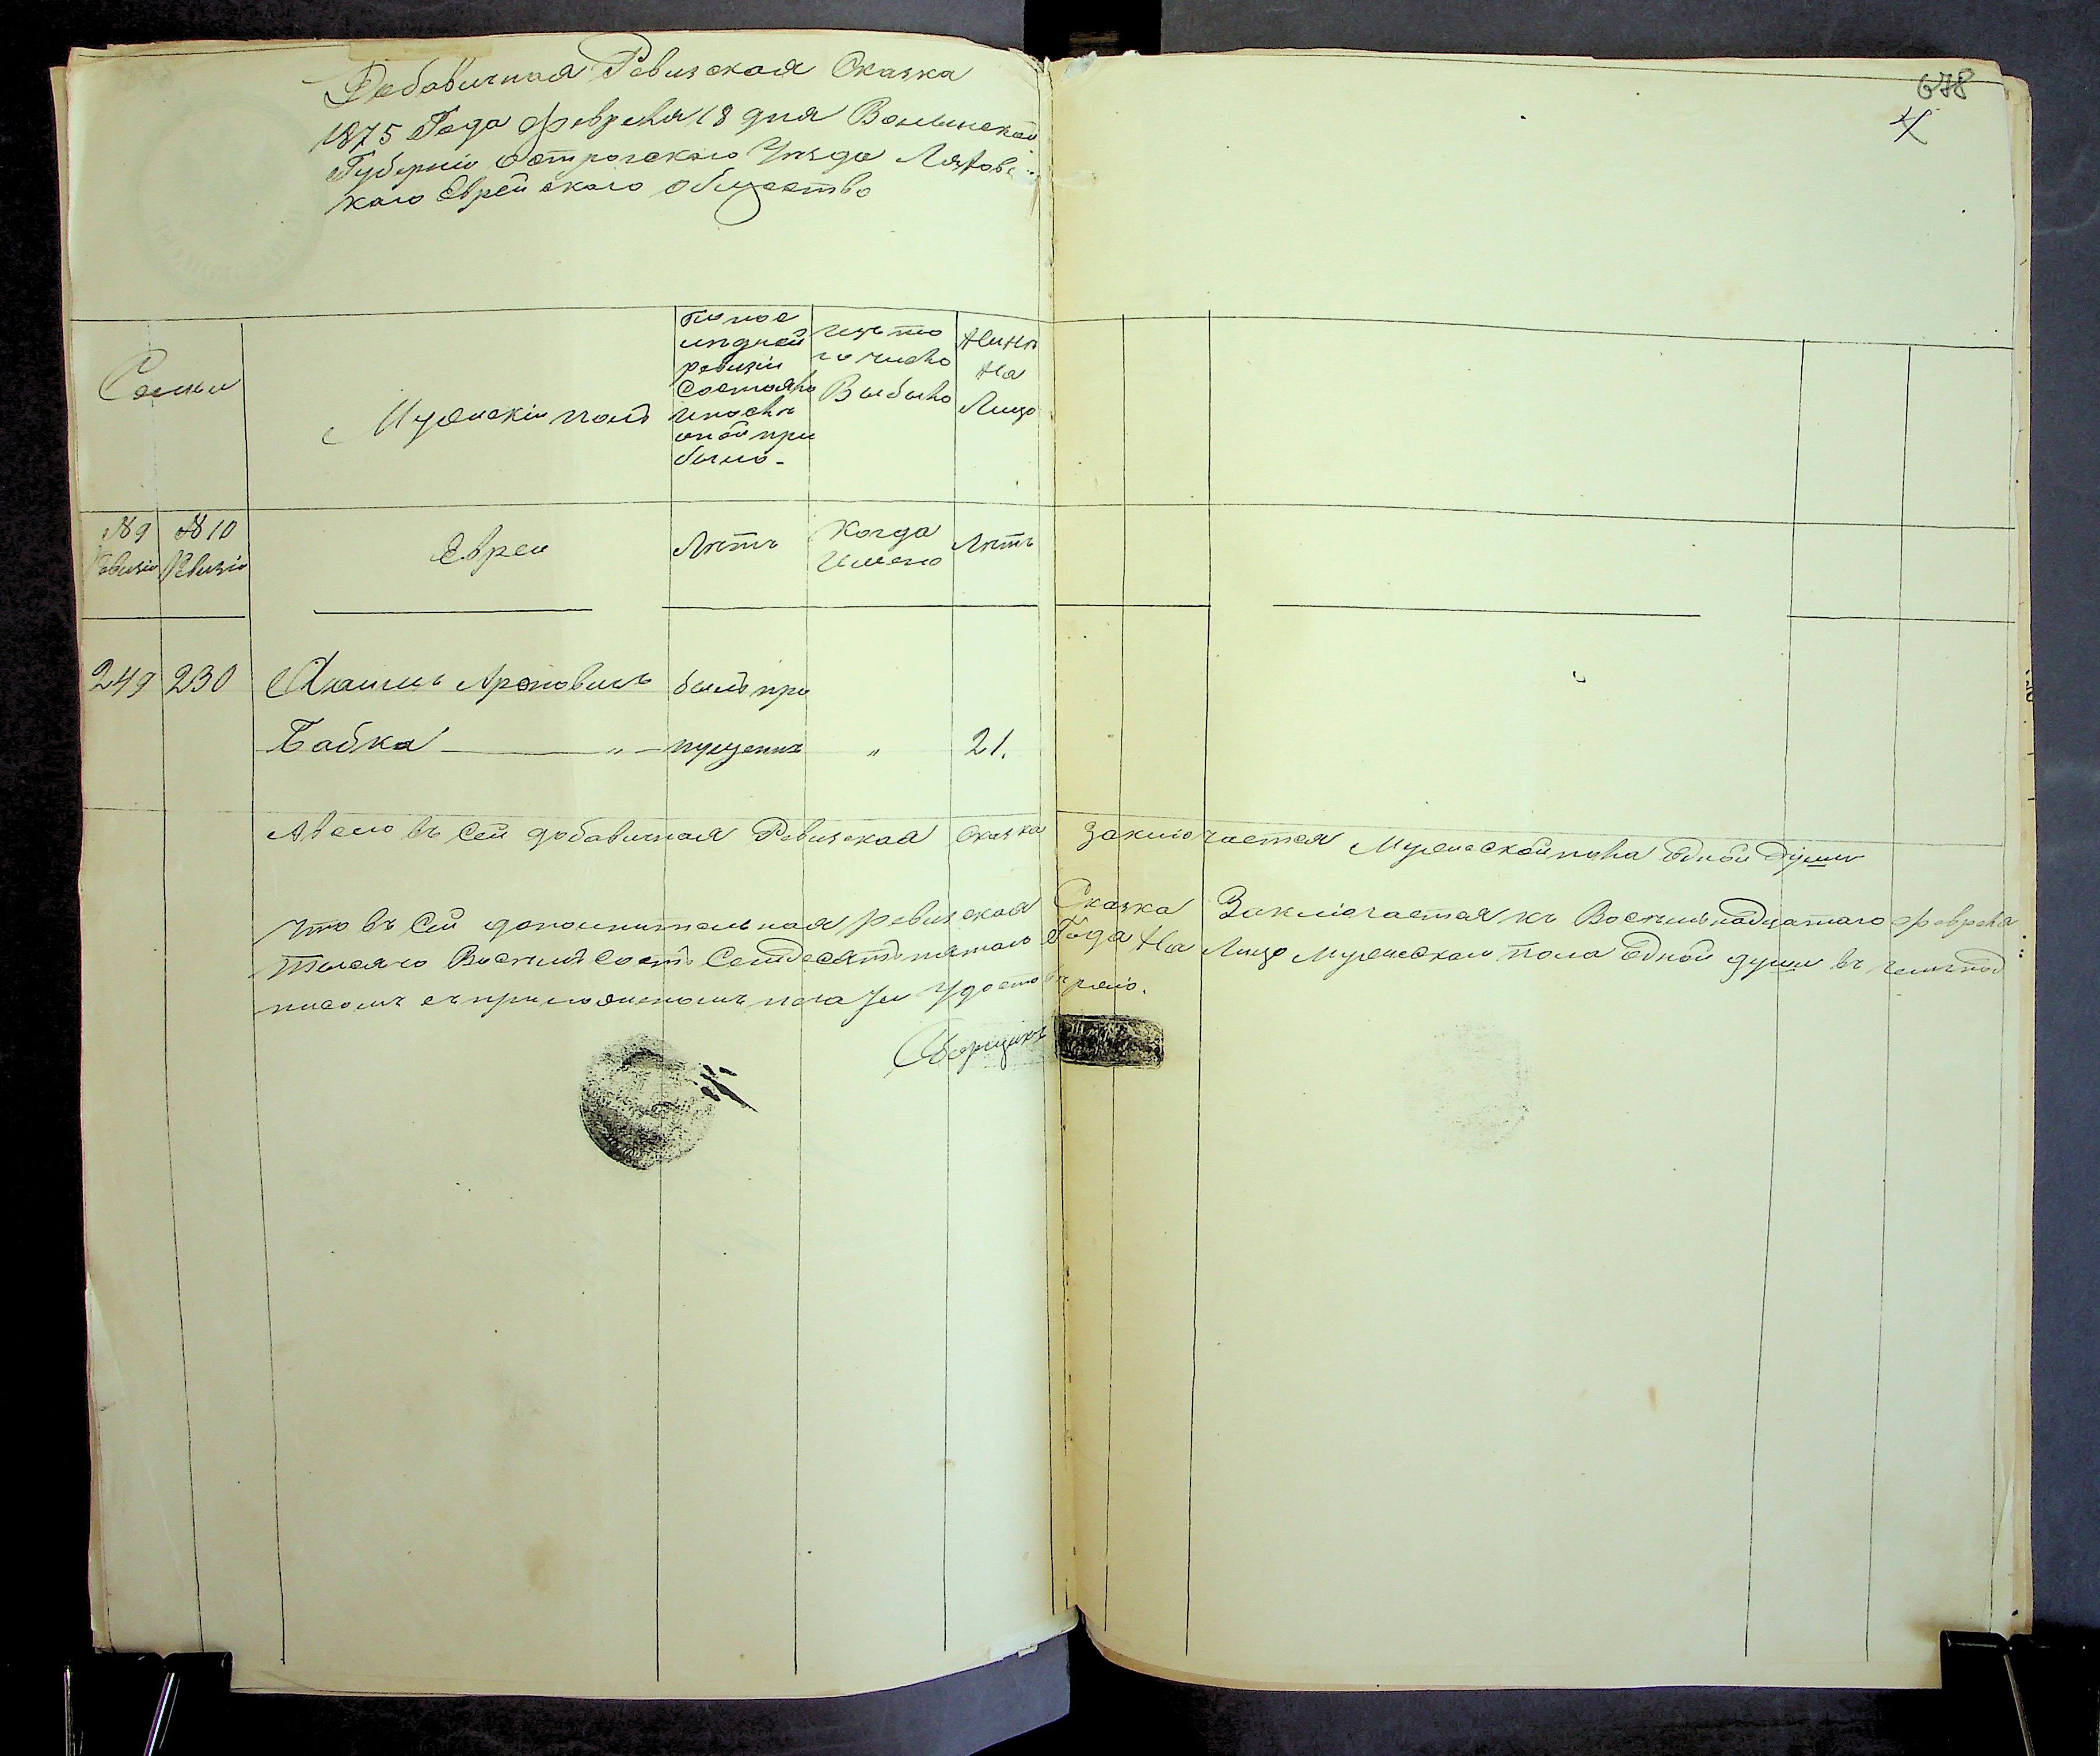 678
4
Добавичная Ревизская Сказка
1875 Года февреля 18 дня Волынской
Губерніи Острогскаго Уѣзда Ляховс
каго Еврейскаго общество
Семьи
Мужескій полъ
По пос
лѣдней
ревизіи
Состояло
и послѣ
оной при
было
изъ то
го число
Выбыло
Нынѣ
на
Лицо
№ 9
Ревизіи
№ 10
Ревизіи
Евреи
Лѣтъ
Когда
Имено
Лѣтъ
249 230 Хаимъ Ароновичъ былъ про
Бабка " пущенъ " 21.
А всего въ Сей добавичная Ревизская Сказка заключается Мужеской пола одной души
Что въ Сей дополнительная ревизская Сказка Заключается къ Восемнадцатаго февреля
тысячо Восемъ сотъ Семдесятъ пятаго Года На Лицо Мужескаго пола одной души въ чемъ под
писомъ съ приложеномъ печати Удостовѣряю.
Сборщикъ